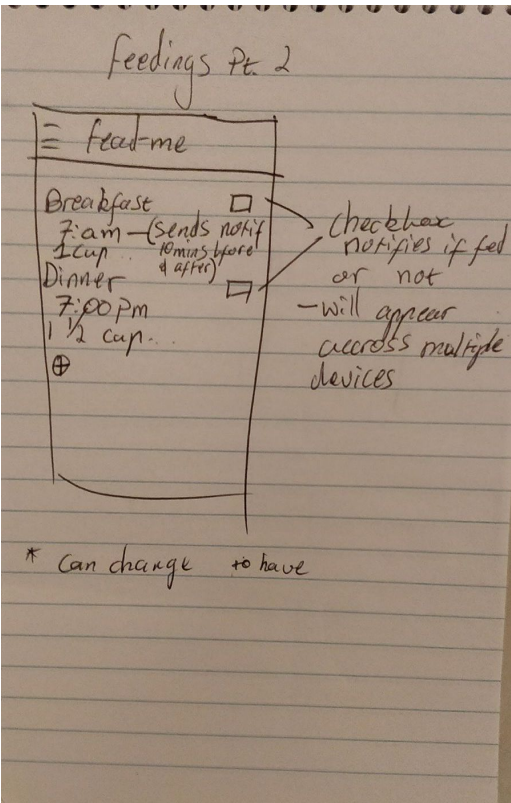 Feedings Pt. 2
feed-me
Breakfast
7:am - (sends notif
1 cup.. 10 mins before
& after)
Dinner
7:00 pm
1 1/2 cup...
Checkbox
notifies if fed
or not
- will appear
accross multiple
devices
* Can change to have